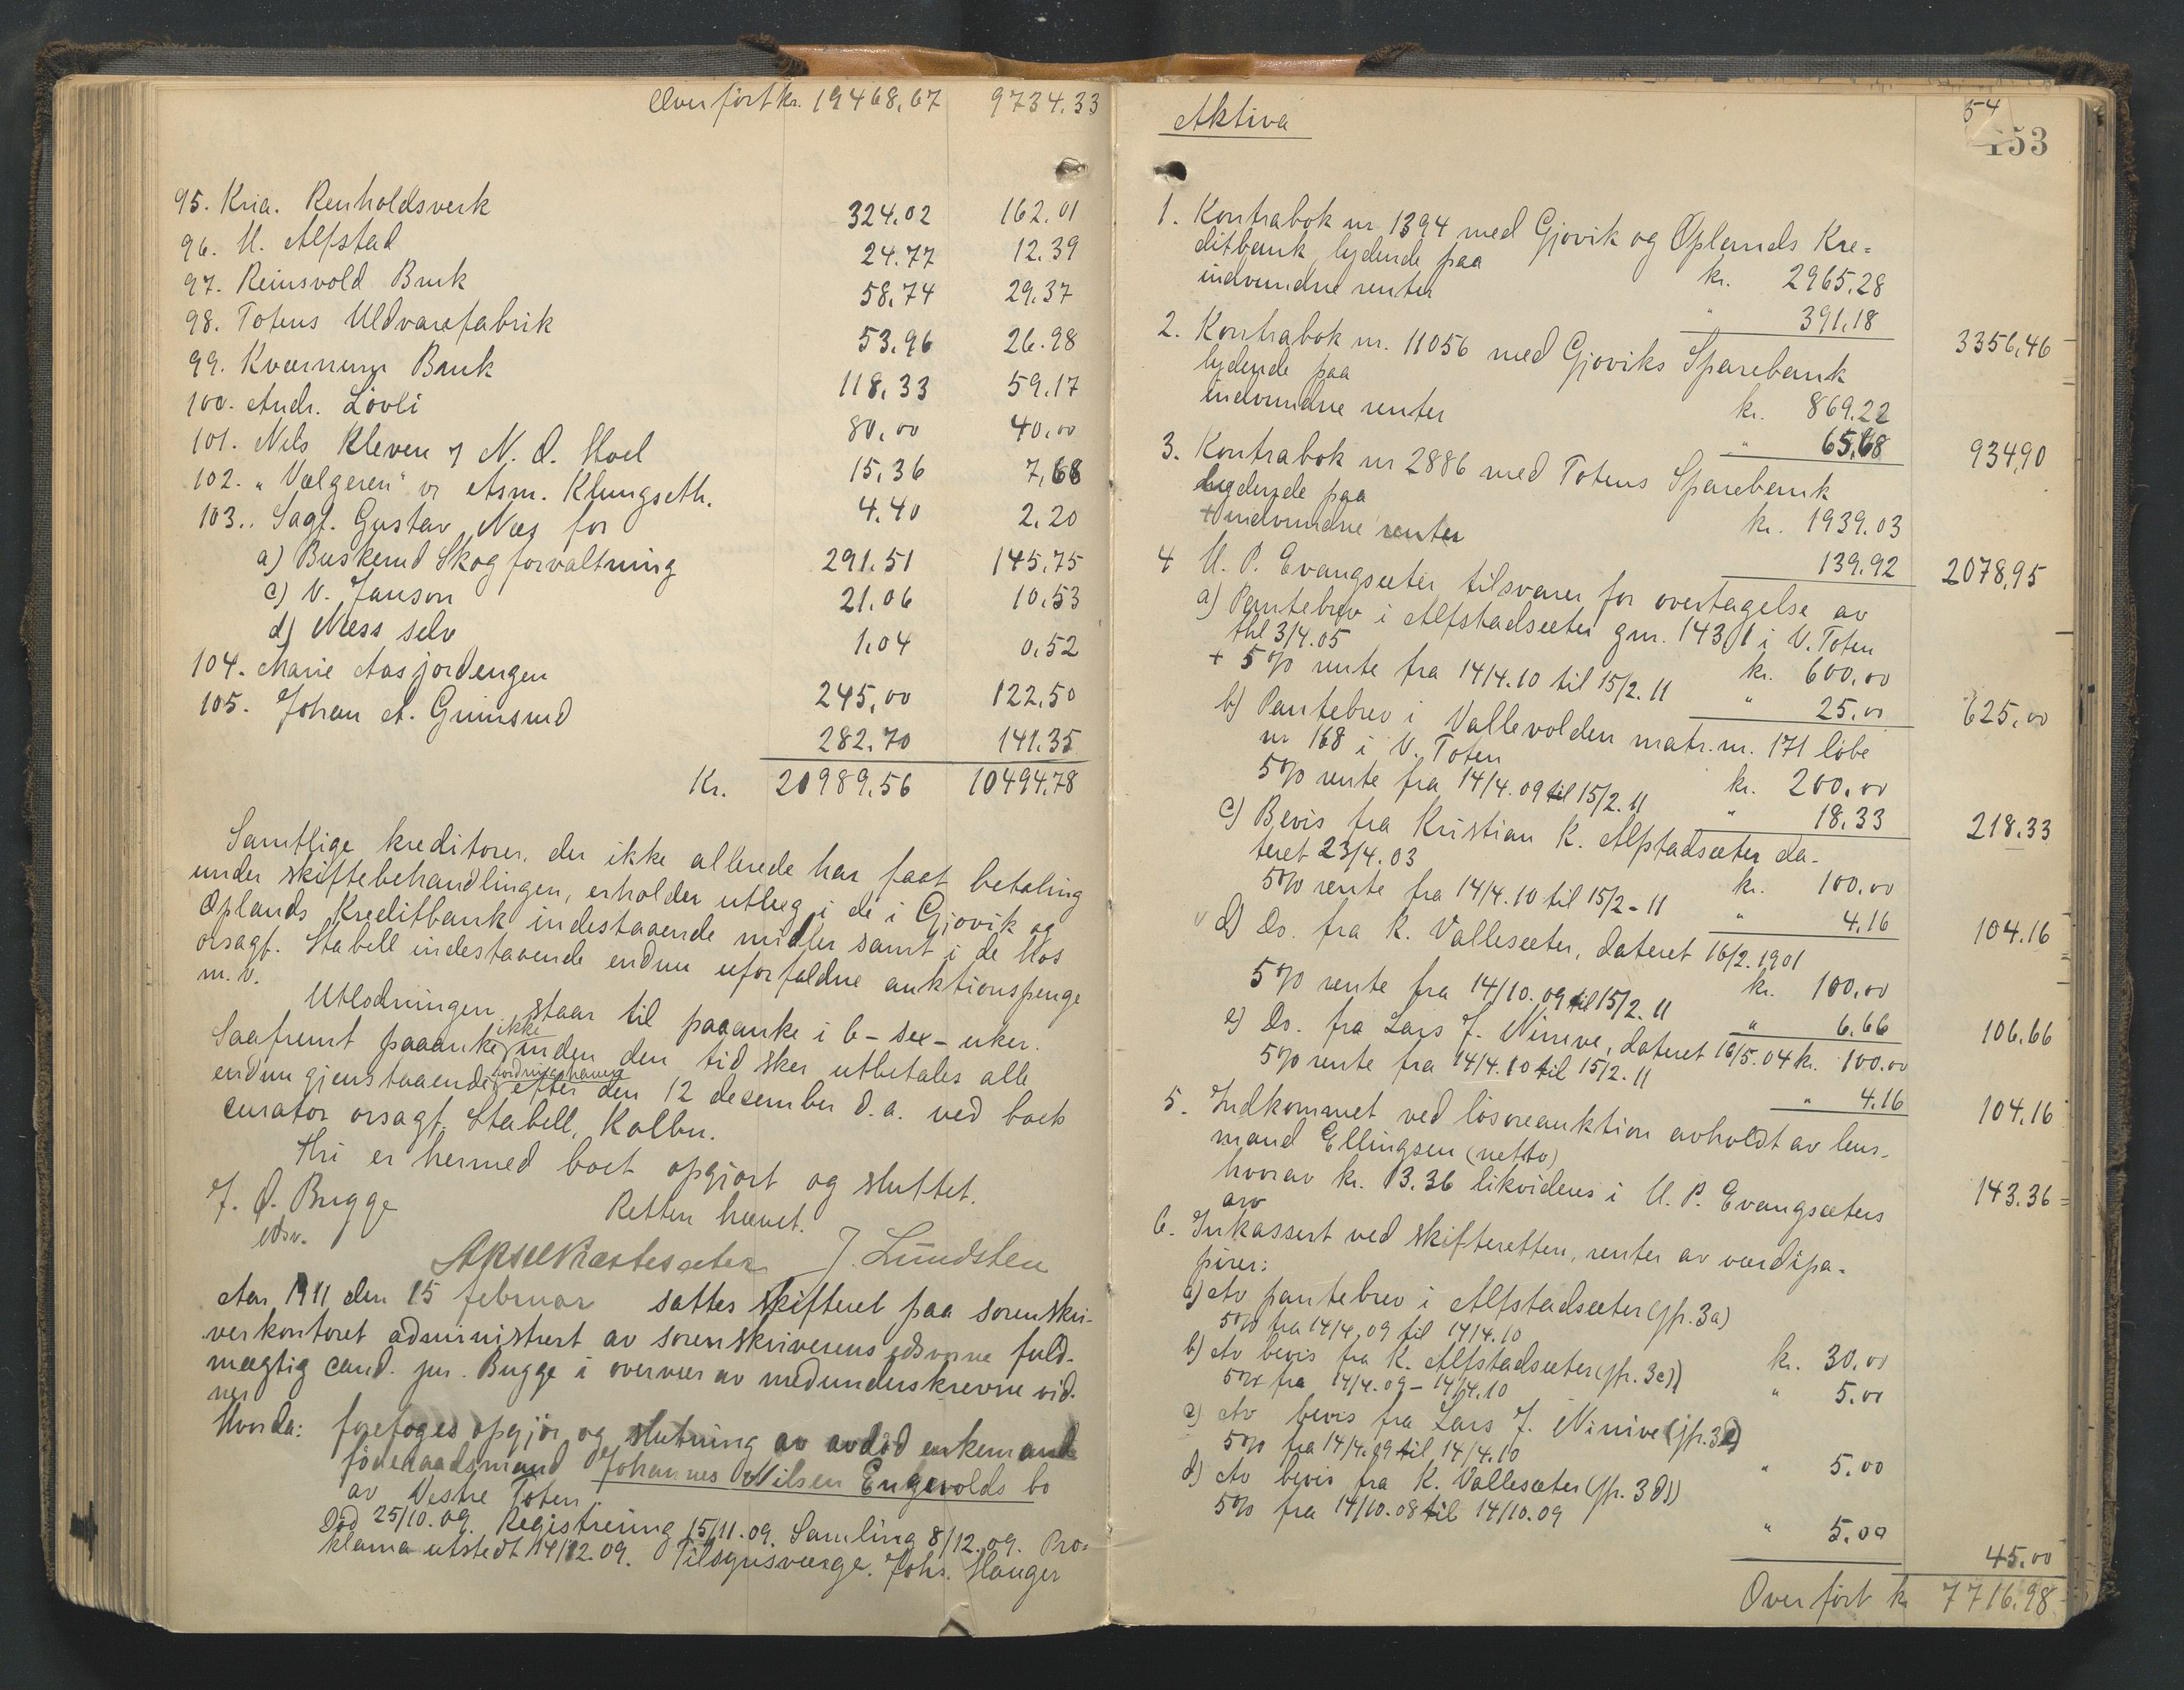 Overført kr. 19468,67 9734.33
95. Kria. Renholdsverk 324.02 162.01
96. U. Alfstad 24.77 12.39
97. Reinsvold Bruk 58.74 29.37
98. Totens Uldvarefabrik 53.96 26.98
99. Kværnum Bruk 118.33 59.17
100. Andr. Lövli 80,00 40,00
101. Nils Kleven & N. O. Hoel 15,36 7,68
102. "Vælgeren" v Asm. Klungseth. 4.40 2.20
103. Sagf. Gustav Næs for
a) Buskerud Skogforvaltning 291.51 145.75
c) V. Janson 21.06 10.53
d) Næss selv 1.04 0.52
104. Marie Aasjordengen 245,00 122.50
105. Johan A. Grimsrud 282.70 141.35
Kr. 20989.56 10494.78
Samtlige kreditorer, der ikke allerede har faat betaling
under skiftebehandlingen, erholder utlæg i de i Gjøvik og
Oplands Kreditbank indestaaende midler samt i de hos
orsagf. Stabell indestaaende endnu uforfaldne auktionspenge
m. v.
Utlodningen staar til paaanke i 6 - sex - uker.
Saafremt paaanke ikke inden den tid sker utbetales alle
endnu gjenstaaende lodninghaver efter den 12 desember d.a. ved boets
curator orsagf. Stabell, Kolbu.
Hri er hermed boet opgjort og sluttet.
Retten hævet.
J. O. Bugge
edsv.
Aksel Næstesæter J. Lundsten
Aar 1911 den 15 februar sattes skifteret paa sorenskri-
verkontoret administrert av sorenskriverens edsvorne fuld-
mægtig cand. jur. Bugge i overvær av medunderskrevne vid-
ner
Hvorda: foretoges opgjör og slutning av avdöd enkemand
föderaadsmand Johannes Nilsen Engevolds bo
av Vestre Toten.
Död 25/10.09. Registrering 15/11.09. Samling 8/12.09. Pro-
klama utstedt 14/12.09. Tilsynsværge. Johs. Hauger
54
153
Aktiva
1. Kontrabok nr 1394 med Gjøvik og Oplands Kre=
ditbank lydende paa kr. 2965.28
indvundne renter " 391.18 3356,46
2. Kontrabok nr. 11056 med Gjøviks Sparebank
lydende paa kr. 869.22
indvundne renter " 65,68 934,90
3. Kontrabok nr 2886 med Totens Sparebank
lydende paa kr. 1939.03
+ indvundne renter 139.92 2078,95
4 U. P. Evangsæter tilsvarer for overtagelse av
a) Pantebrev i Alfstadsæter gnr. 143/1 i V. Toten
thl 3/4.05 kr. 600,00
+ 5% rente fra 14/4.10 til 15/2. 11 " 25,00 625,00
b) Pantebrev i Vallevolden matr.nr. 171 löbe
nr 168 i V. Toten kr. 200,00
5% rente fra 14/4.09 til 15/2. 11 " 18.33 218.33
c) Bevis fra Kristian K. Alfstadsæter da-
teret 23/4.03 kr. 100,00
5% rente fra 14/4.10 til 15/2 - 11 " 4.16 104.16
v d) Do. fra K. Vallesæter, dateret 16/2.1901
kr. 100,00
5% rente fra 14/10. 09 til 15/2. 11 " 6.66 106.66
e) Do. fra Lars J. Ninive, dateret 16/5.04 kr. 100.00
5% rente fra 14/4.10 til 15/2. 11 " 4.16 104.16
5. Indkommet ved lösöreauktion avholdt av lens-
mand Ellingsen (netto) 143.36
hvorav kr. 13.36 likvideres i U. P. Evangsæters
arv
6. Inkassert ved skifteretten, renter av værdipa-
pirer:
a) Av pantebrev i Alfstadsæter (jfr. 3a)
5% fra 14/4.09 til 14/4.10 kr. 30,00
b) Av bevis fra K. Alfstadsæter (jfr. 3c))
5% fra 14/4.09 - 14/4.10 " 5.00
c) Av bevis fra Lars J. Ninive (jfr. 3e)
5% fra 14/4.09 til 14/4.10 " 5.00
d) Av bevis fra K. Vallesæter (jfr. 3d))
5% fra 14/10.08 til 14/10.09 " 5.00 45.00
Overfört kr 7716.98